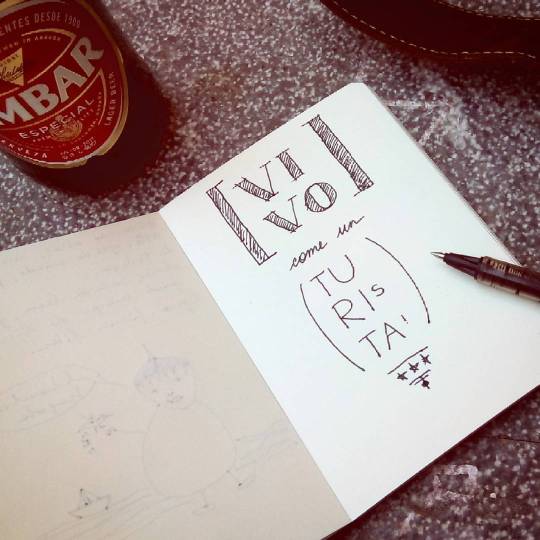 ENTES DESDE 1900
MBAR
ESPECIAL
CERVEZA
LAGER BEER
VI
VO
come un
TU
RIs
TA!